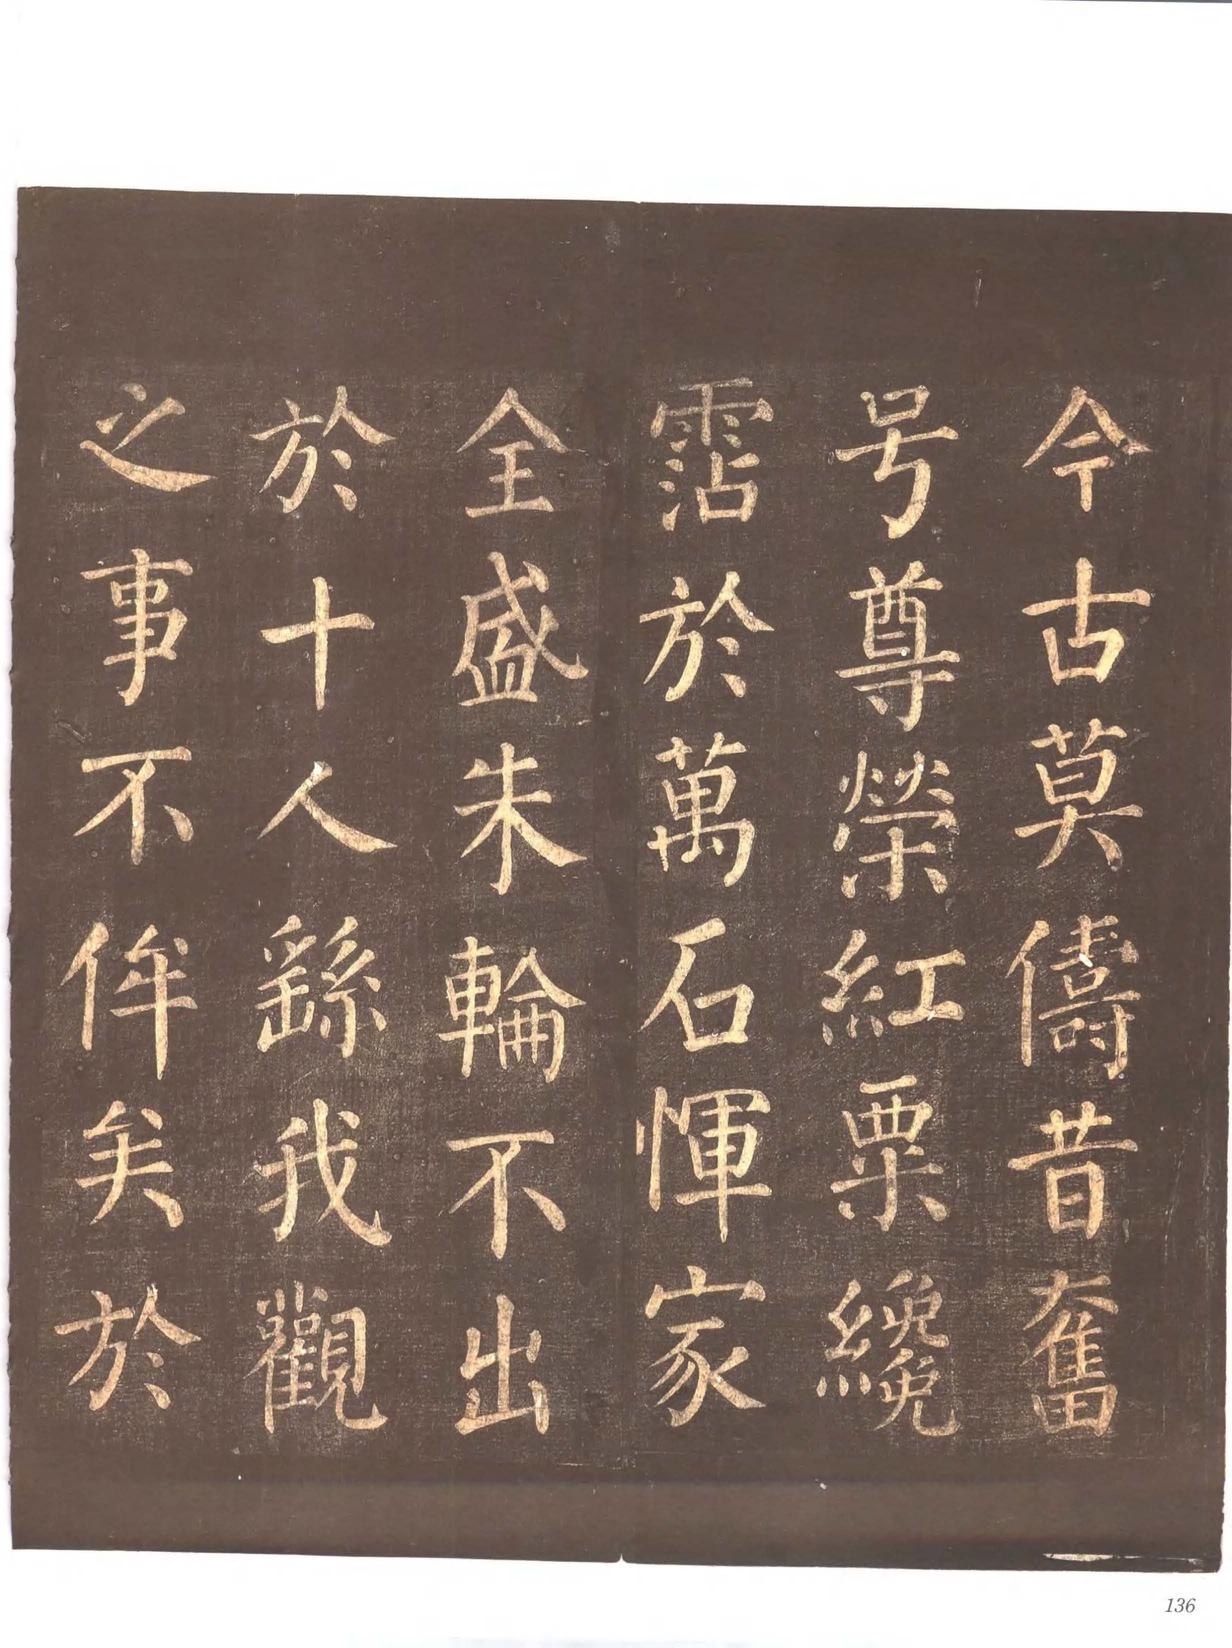 今古莫儔昔奮
号尊榮紅粟纔
霑於萬石惲家
全盛朱輪不出
於十人繇我觀
之事不侔矣於
136